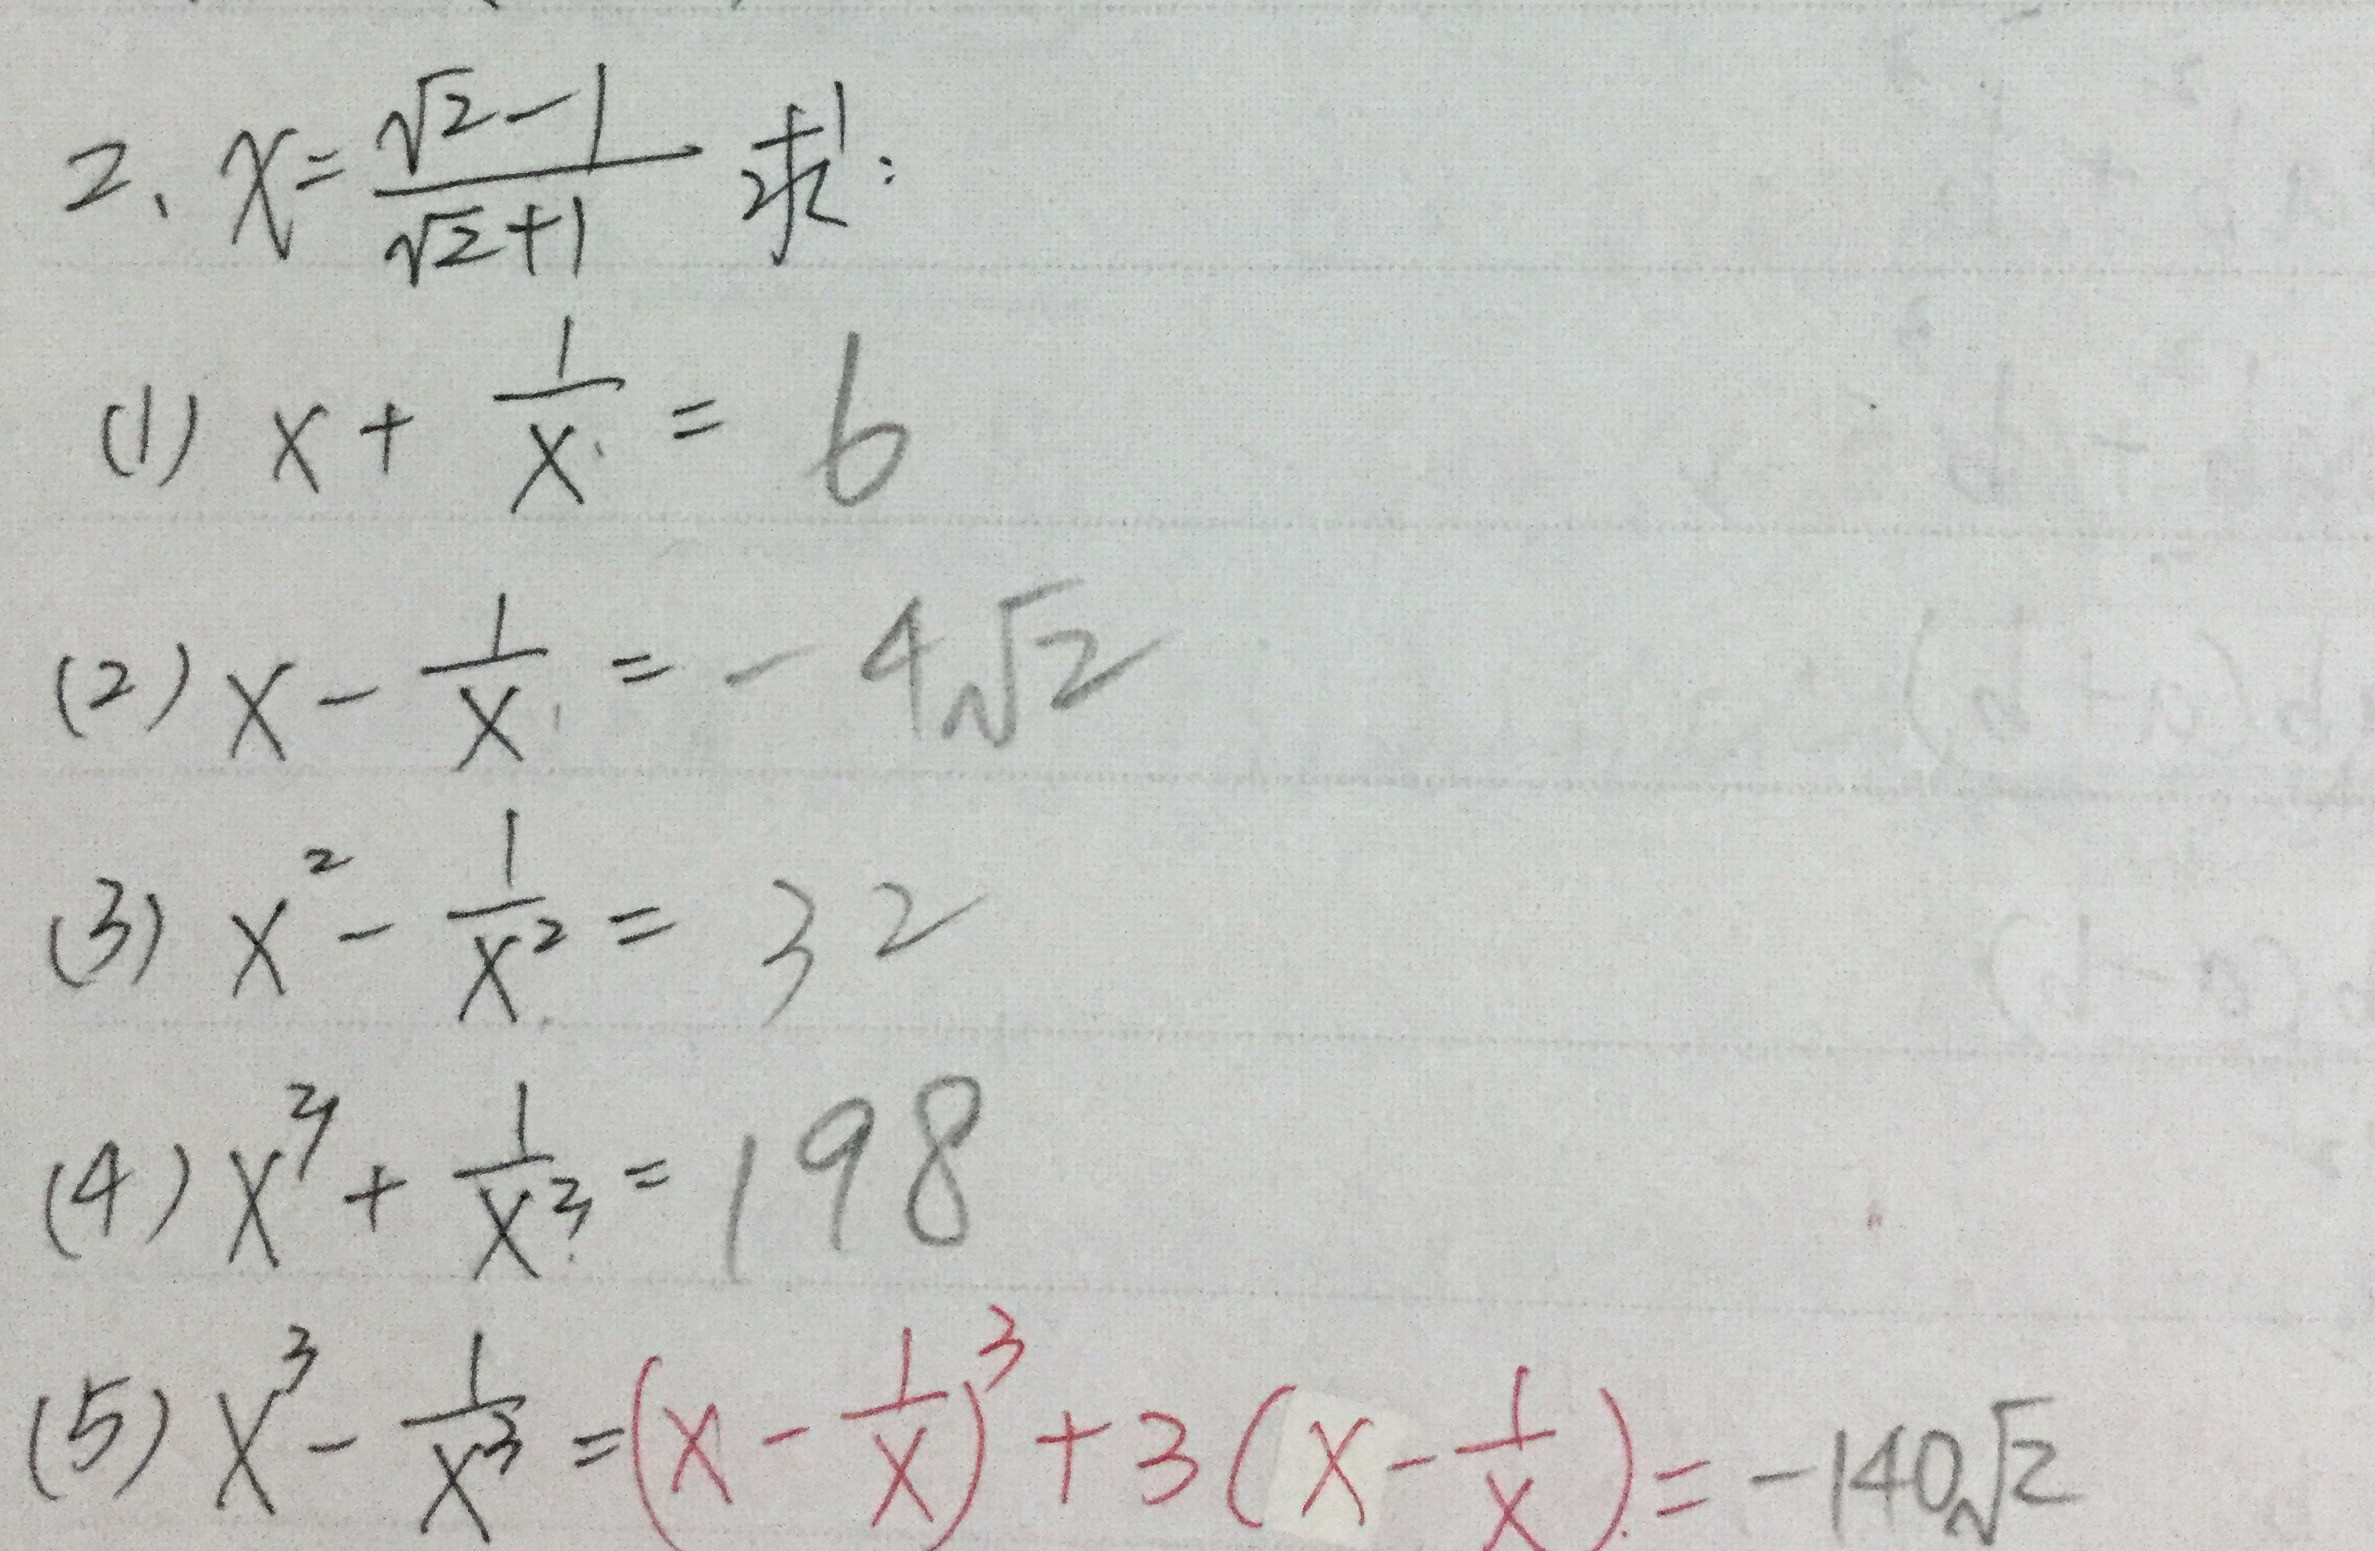 2、x=(√2-1)/(√2+1) 求:
(1) x + 1/x = 6
(2) x - 1/x = -4√2
(3) x² - 1/x² = 32
(4) x³ + 1/x³ = 198
(5) x³ - 1/x³ = (x - 1/x)³ + 3(x - 1/x) = -140√2